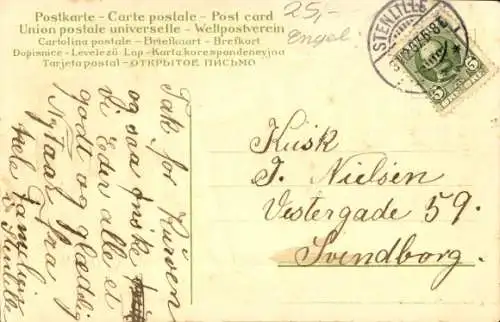 Postkarte - Carte postale - Post card
Union postale universelle - Weltpostverein
Cartolina postale - Briefkaart - Brefkort
Dopisnice - Levelező Lap - Karta korespondencyjna
Tarjeta postal - ОТКРЫТОЕ ПИСЬМО
25,-
Engel
STENLILLE
5 5
Tak for Kurven
og saa ønske
vi Eder alle et
godt og glædelig
Nytaar fra
hele Familien
i Stenlille
Kusk
J. Nielsen
Vestergade 59.
Svendborg.